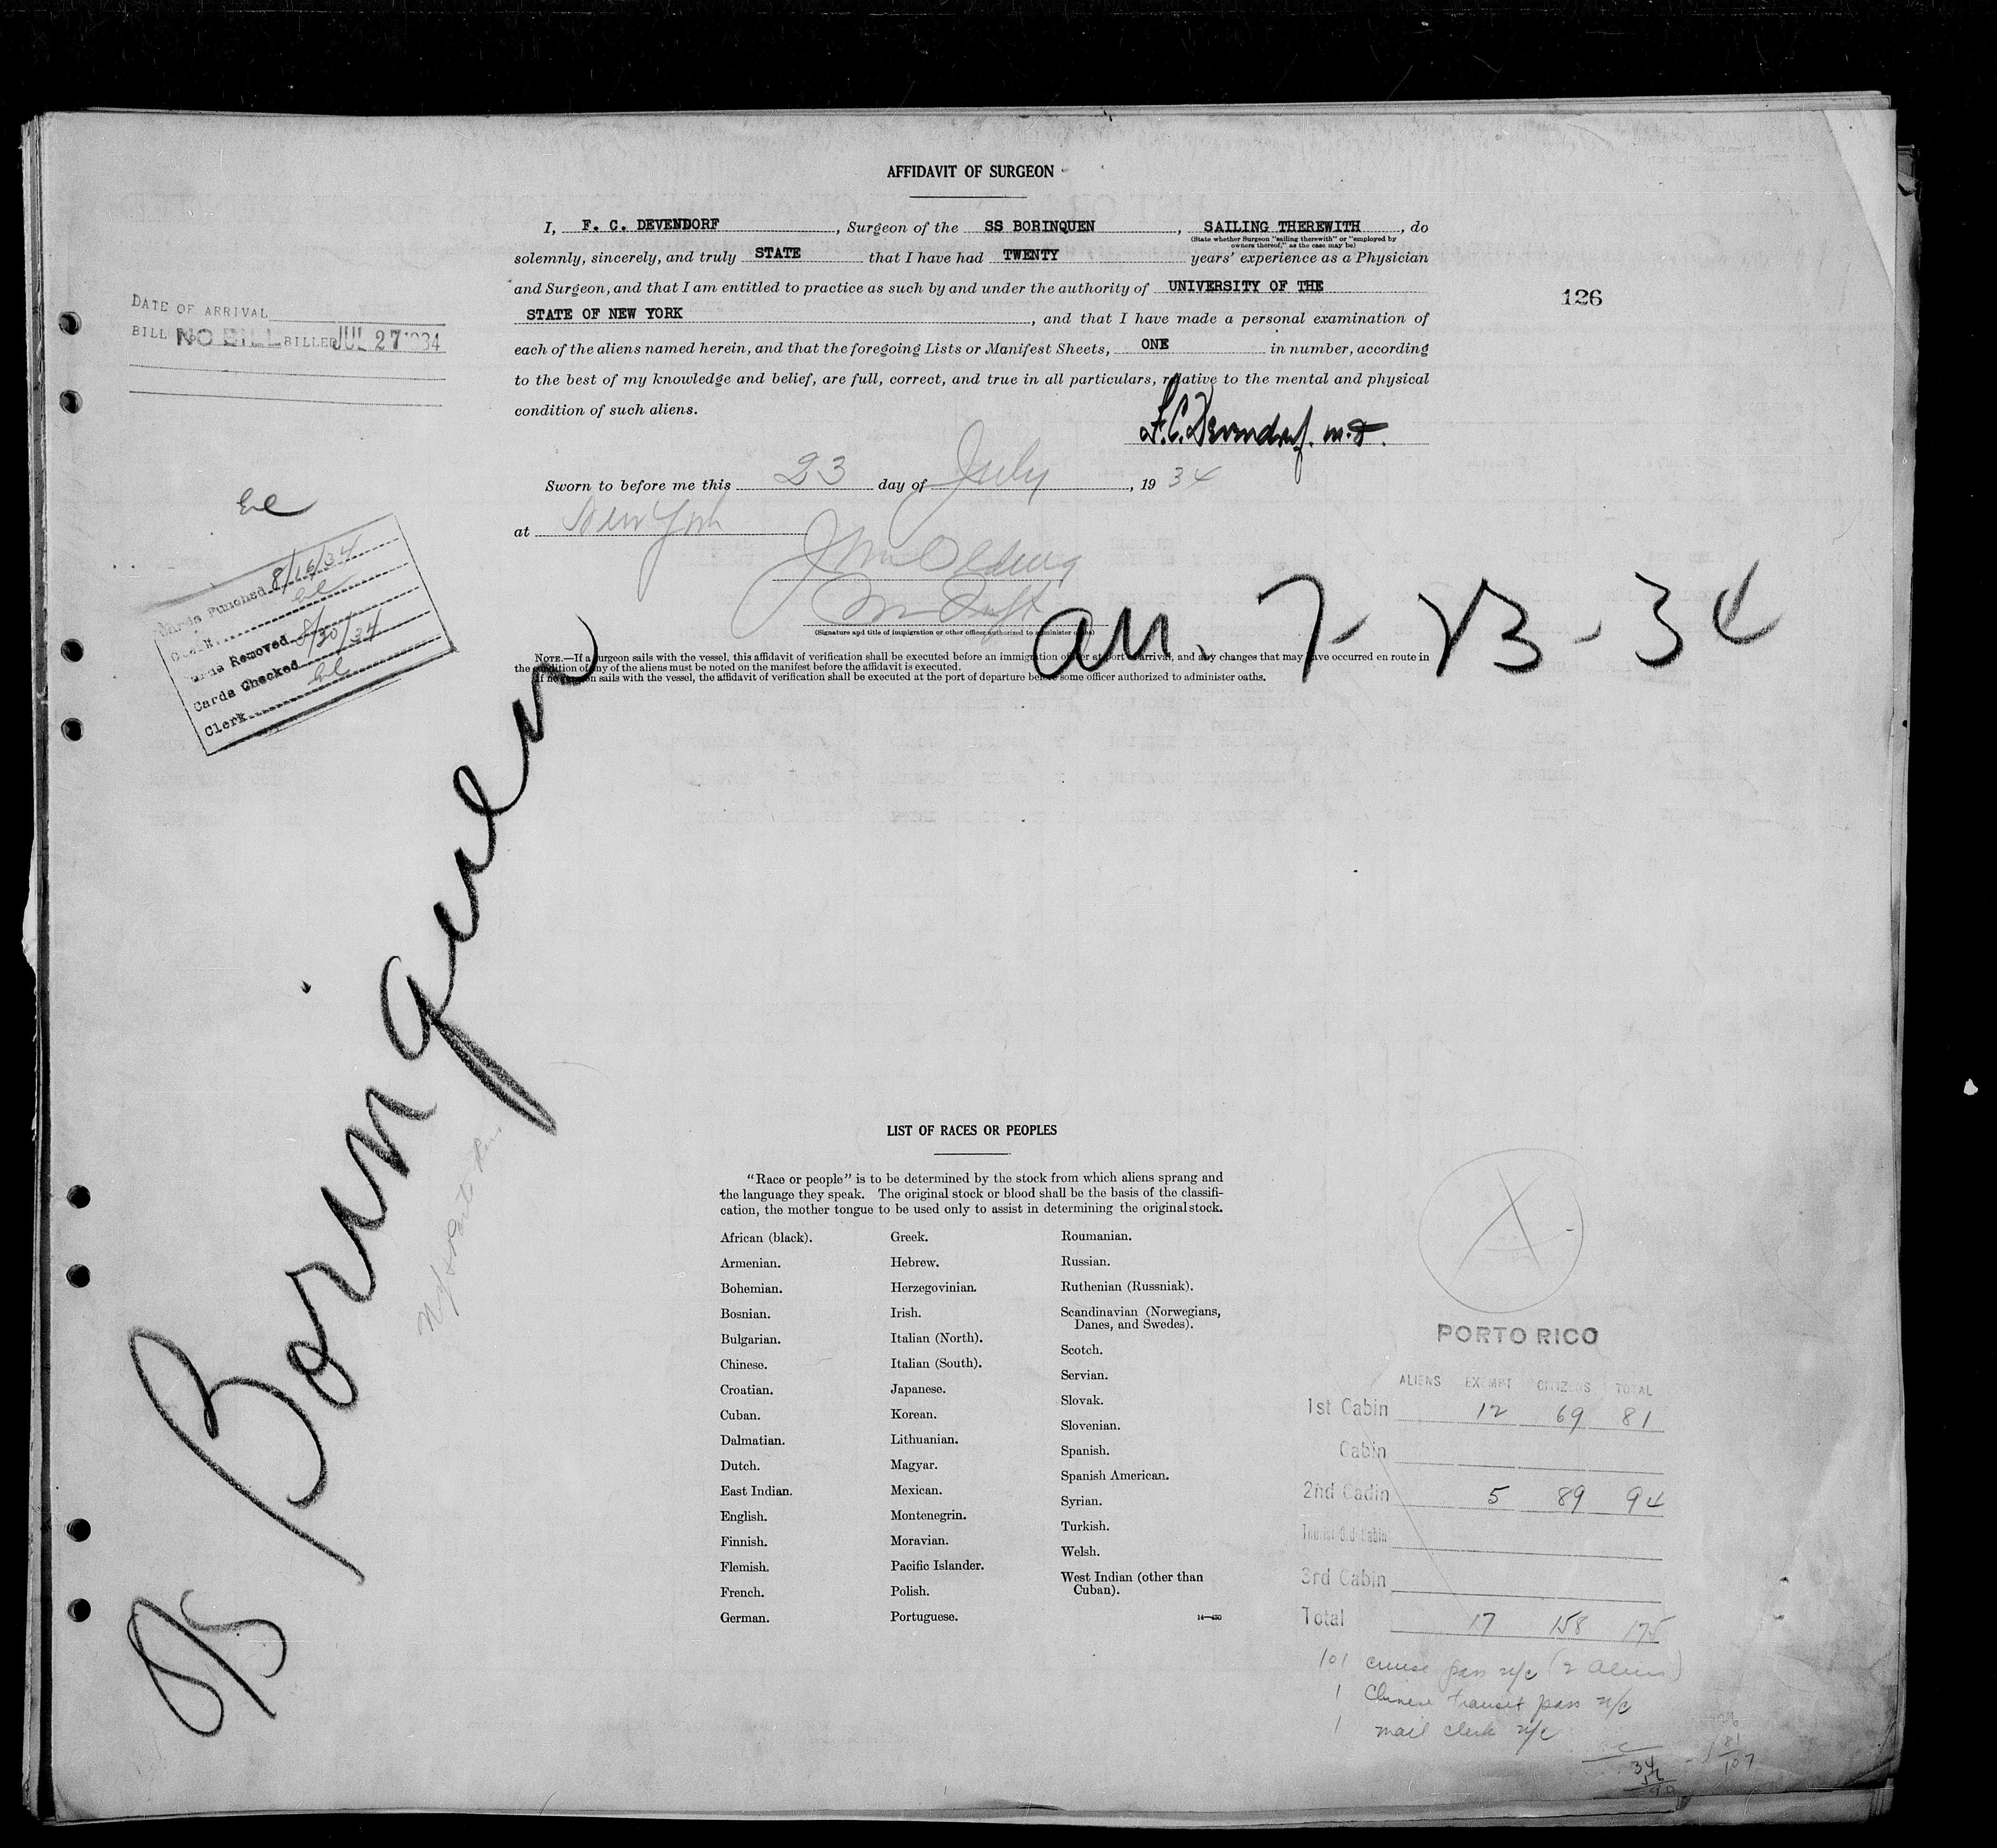 AFFIDAVIT OF SURGEON
I, F. C. DEVENDORF, Surgeon of the SS BORINQUEN, SAILING THEREWITH, do
(State whether Surgeon "sailing therewith" or "employed by
owners thereof," as the case may be)
solemnly, sincerely, and truly STATE that I have had TWENTY years' experience as a Physician
and Surgeon, and that I am entitled to practice as such by and under the authority of UNIVERSITY OF THE
STATE OF NEW YORK, and that I have made a personal examination of
each of the aliens named herein, and that the foregoing Lists or Manifest Sheets, ONE in number, according
to the best of my knowledge and belief, are full, correct, and true in all particulars, relative to the mental and physical
condition of such aliens.
F.C. Devendorf. M.D.
Sworn to before me this 23 day of July, 1934
at New York
(Signature and title of immigration or other officer authorized to administer oaths)
NOTE.—If a surgeon sails with the vessel, this affidavit of verification shall be executed before an immigration officer at port of arrival, and any changes that may have occurred en route in
the condition of any of the aliens must be noted on the manifest before the affidavit is executed.
If no surgeon sails with the vessel, the affidavit of verification shall be executed at the port of departure before some officer authorized to administer oaths.
126
DATE OF ARRIVAL
BILL NO BILL BILLED JUL 27 1934
Cards Punched 8/16/34
Clerk
Cards Removed 8/30/34
Cards Checked
Clerk
arr. 7-23-34
S/S Borinquen
LIST OF RACES OR PEOPLES
"Race or people" is to be determined by the stock from which aliens sprang and
the language they speak. The original stock or blood shall be the basis of the classifi-
cation, the mother tongue to be used only to assist in determining the original stock.
African (black).
Armenian.
Bohemian.
Bosnian.
Bulgarian.
Chinese.
Croatian.
Cuban.
Dalmatian.
Dutch.
East Indian.
English.
Finnish.
Flemish.
French.
German.
Greek.
Hebrew.
Herzegovinian.
Irish.
Italian (North).
Italian (South).
Japanese.
Korean.
Lithuanian.
Magyar.
Mexican.
Montenegrin.
Moravian.
Pacific Islander.
Polish.
Portuguese.
Roumanian.
Russian.
Ruthenian (Russniak).
Scandinavian (Norwegians,
Danes, and Swedes).
Scotch.
Servian.
Slovak.
Slovenian.
Spanish.
Spanish American.
Syrian.
Turkish.
Welsh.
West Indian (other than
Cuban).
14—430
A
PORTO RICO
ALIENS EXEMPT CITIZENS TOTAL
1st Cabin 12 69 81
Cabin
2nd Cabin 5 89 94
Tourist 3rd Cabin
3rd Cabin
Total 17 158 175
101 cruise pass n/c (2 aliens)
1 Chinese transit pass n/c
1 mail clerk n/c